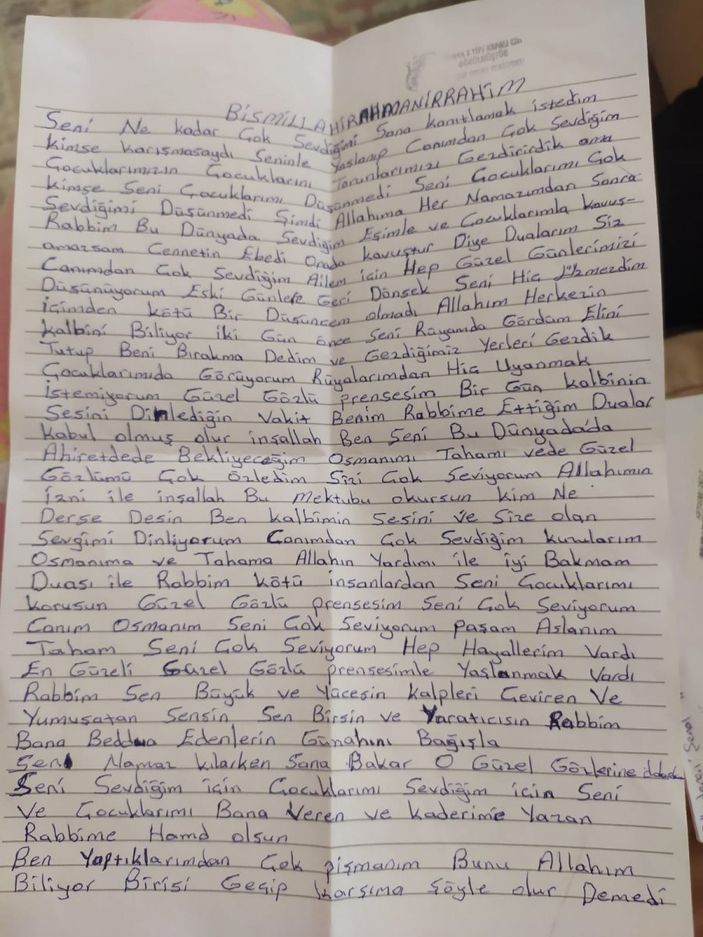 BİSMİLLAHİRAHMANİRRAHİM
Seni Ne kadar Çok Sevdiğimi Sana kanıtlamak istedim
kimse karışmasaydı Seninle Yaslanıp Canımdan Çok Sevdiğim
Çocuklarımızın Çocuklarını Torunlarımızı Gezdirirdik ama
kimse Seni Çocuklarımı Düşünmedi Seni Çocuklarımı Çok
Sevdiğimi Düşünmedi Şimdi Allahıma Her Namazımdan Sonra
Rabbim Bu Dünyada Sevdiğim Eşimle ve Çocuklarımla kavuş-
amazsam Cennetin Ebedi Orada kavuştur Diye Dualarım Siz
Canımdan Çok Sevdiğim Ailem için Hep Güzel Günlerimizi
Düşünüyorum Eski Günlere Geri Dönsek Seni Hiç Üzmezdim
içimden kötü Bir Düşüncem olmadı Allahım Herkezin
kalbini Biliyor iki Gün önce Seni Rüyamda Gördüm Elini
Tutup Beni Bırakma Dedim ve Gezdiğimiz Yerleri Gezdik
Çocuklarımıda Görüyorum Rüyalarımdan Hiç Uyanmak
istemiyorum Güzel Gözlü prensesim Bir Gün kalbinin
Sesini Dinlediğin Vakit Benim Rabbime Ettiğim Dualar
kabul olmuş olur inşallah Ben Seni Bu Dünyada'da
Ahiretdede Bekliyeceğim Osmanımı Tahamı vede Güzel
Gözlümü Çok özledim Sizi Çok Seviyorum Allahımın
izni ile inşallah Bu mektubu okursun kim Ne
Derse Desin Ben kalbimin Sesini ve Size olan
Sevgimi Dinliyorum Canımdan Çok Sevdiğim kuzularım
Osmanıma ve Tahama Allahın Yardımı ile iyi Bakmam
Duası ile Rabbim kötü insanlardan Seni Çocuklarımı
korusun Güzel Gözlü prensesim Seni Çok Seviyorum
Canım Osmanım Seni Çok Seviyorum paşam Aslanım
Taham Seni Çok Seviyorum Hep Hayallerim Vardı
En Güzeli Güzel Gözlü prensesimle Yaşlanmak Vardı
Rabbim Sen Büyük ve Yücesin kalpleri Çeviren Ve
Yumuşatan Sensin Sen Birsin ve Yaratıcısın Rabbim
Bana Beddua Edenlerin Günahını Bağışla
Seni Namaz kılarken Sana Bakar O Güzel Gözlerine
Seni Sevdiğim için Çocuklarımı Sevdiğim için Seni
Ve Çocuklarımı Bana Veren ve kaderime Yazan
Rabbime Hamd olsun
Ben Yaptıklarımdan Çok pişmanım Bunu Allahım
Biliyor Birisi Geçip karşıma şöyle olur Demedi